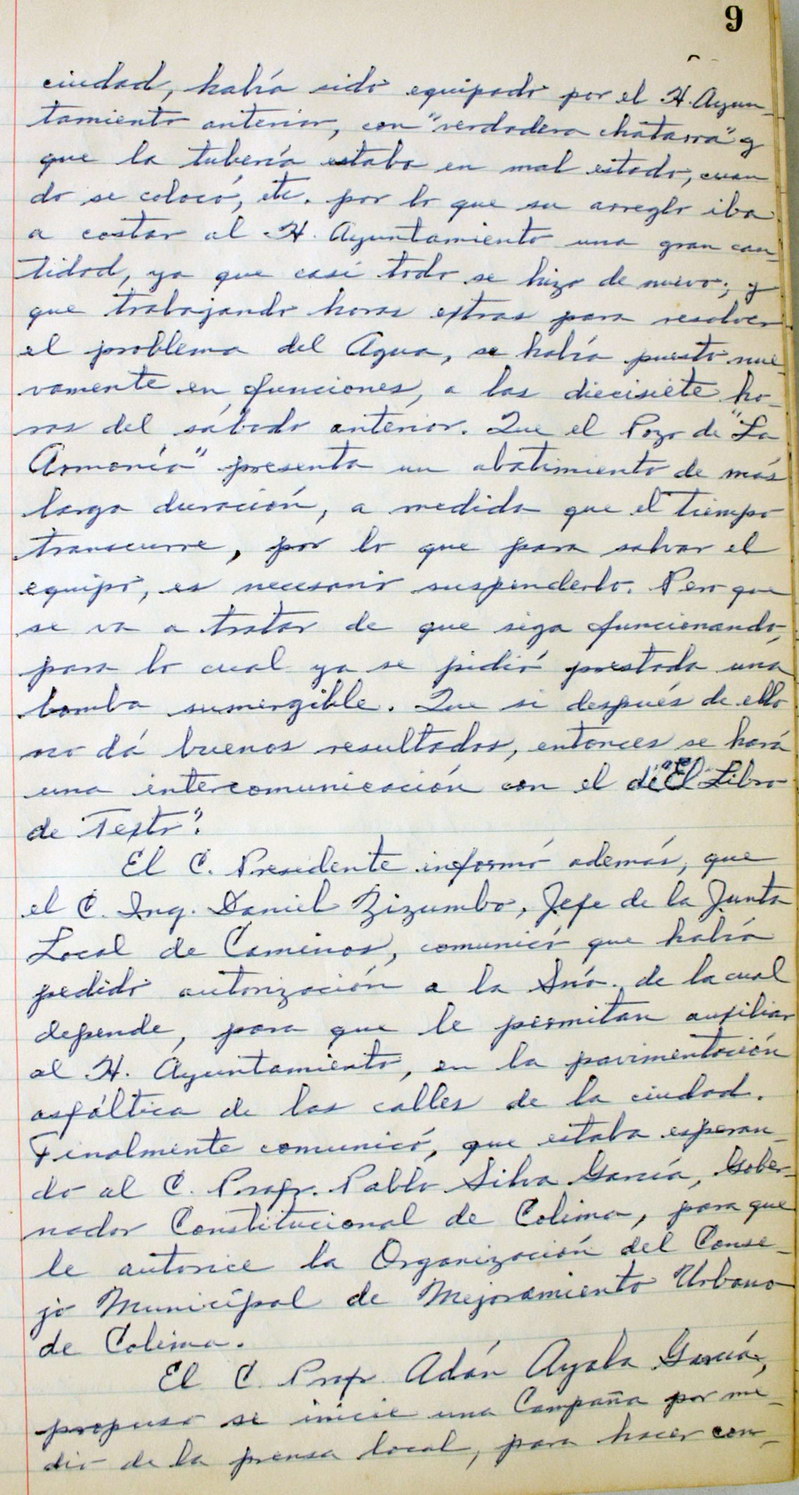 9
ciudad, había sido equipado por el H. Ayun-
tamiento anterior, con "verdadera chatarra" y
que la tubería estaba en mal estado, cuan
do se colocó, etc. por lo que su arreglo iba
a costar al H. Ayuntamiento una gran can-
tidad, ya que casi todo se hizo de nuevo; y
que trabajando horas extras para resolver
el problema del Agua, se había puesto nue-
vamente en funciones, a las diecisiete ho-
ras del sábado anterior. Que el Pozo de "La
Armonía" presenta un abatimiento de más
larga duración, a medida que el tiempo
transcurre, por lo que para salvar el
equipo, es necesario suspenderlo. Pero que
se va a tratar de que siga funcionando,
para lo cual ya se pidió prestada una
bomba sumergible. Que si después de ello
no dá buenos resultados, entonces se hará
una intercomunicación con el de "El Libro
de Texto".
El C. Presidente informó además, que
el C. Ing. Daniel Zizumbo, Jefe de la Junta
Local de Caminos, comunicó que había
pedido autorización a la Sría. de la cual
depende, para que le permitan auxiliar
al H. Ayuntamiento, en la pavimentación
asfáltica de las calles de la ciudad.
Finalmente comunicó, que estaba esperan-
do al C. Profr. Pablo Silva García, Gober-
nador Constitucional de Colima, para que
le autorice la Organización del Conse-
jo Municipal de Mejoramiento Urbano
de Colima.
El C. Profr. Adán Ayala García,
propuso se inicie una Campaña por me-
dio de la prensa local, para hacer con-